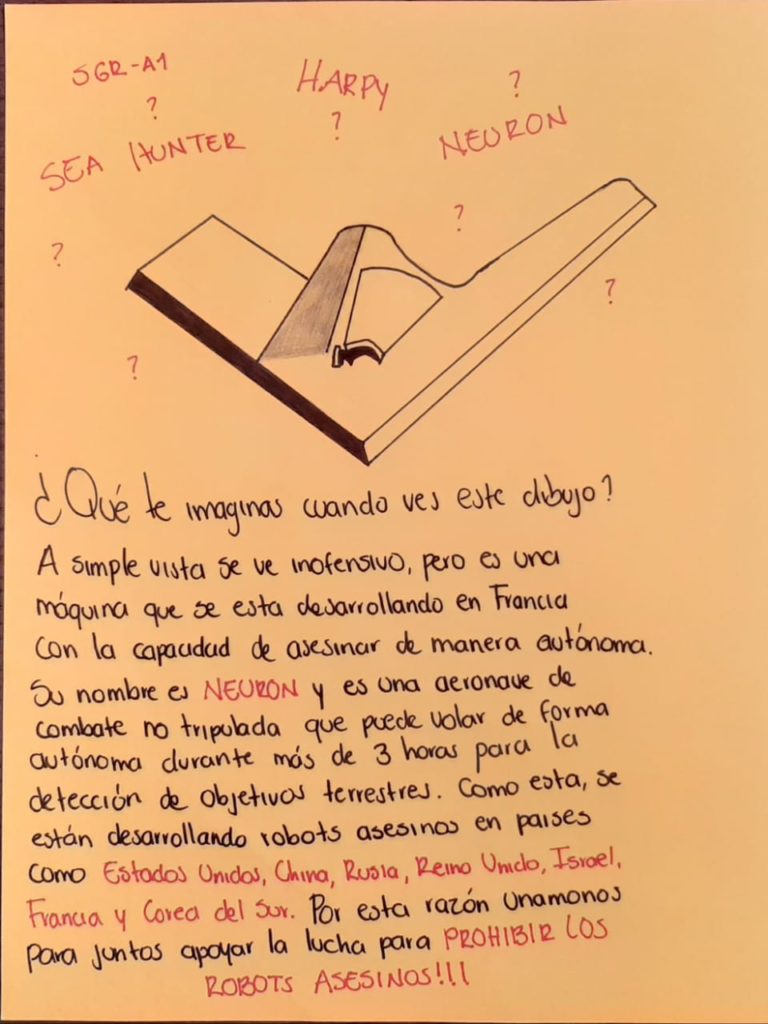 SGR-A1
?
SEA HUNTER
HARPY
?
?
NEURON
?
?
?
?
¿Qué te imaginas cuando ves este dibujo?
A simple vista se ve inofensivo, pero es una
máquina que se esta desarrollando en Francia
con la capacidad de asesinar de manera autónoma.
Su nombre es NEURON y es una aeronave de
combate no tripulada que puede volar de forma
autónoma durante más de 3 horas para la
detección de objetivos terrestres. Como esta, se
están desarrollando robots asesinos en paises
como Estados Unidos, China, Rusia, Reino Unido, Israel,
Francia y Corea del Sur. Por esta razón unamonos
para juntos apoyar la lucha para PROHIBIR LOS
ROBOTS ASESINOS!!!